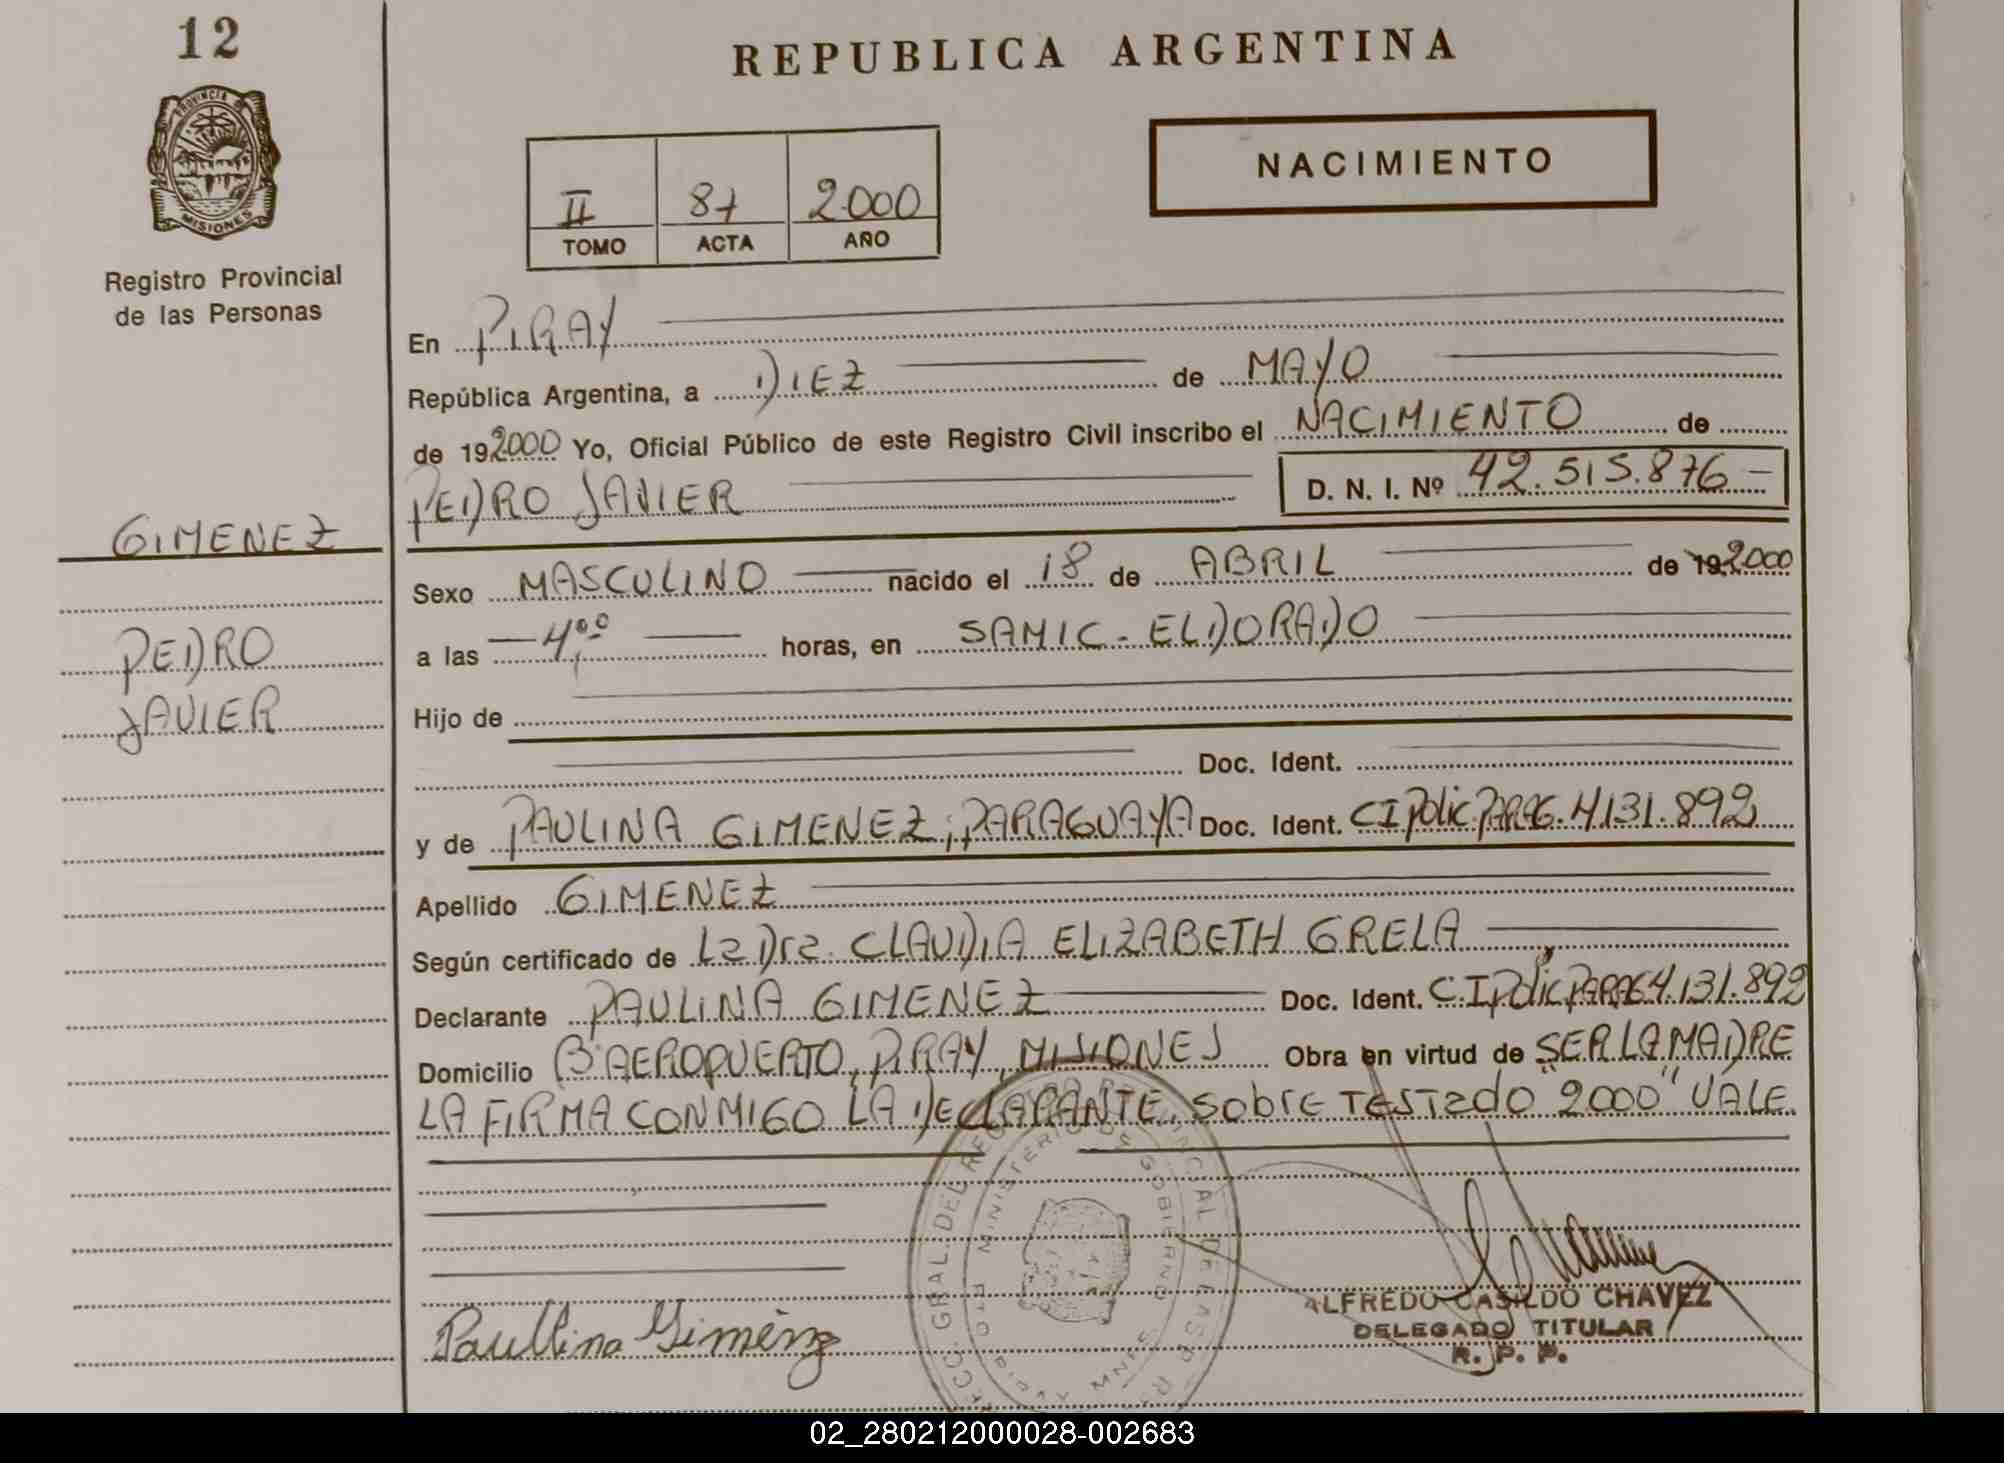 12
REPUBLICA ARGENTINA
PROVINCIA DE
MISIONES
Registro Provincial
de las Personas
II 87 2.000
TOMO ACTA AÑO
NACIMIENTO
En PIRAY
República Argentina, a DIEZ de MAYO
de 192000 Yo, Oficial Público de este Registro Civil inscribo el NACIMIENTO de
PEDRO JAVIER D. N. I. Nº 42.515.876-
GIMENEZ
PEDRO
JAVIER
Sexo MASCULINO nacido el 18 de ABRIL de 192000
a las 4,00 horas, en SAMIC - ELDORADO
Hijo de
Doc. Ident.
y de PAULINA GIMENEZ, PARAGUAYA Doc. Ident. CI Polic. PARAG. 4.131.892
Apellido GIMENEZ
Según certificado de La Dra. CLAUDIA ELIZABETH GRELA
Declarante PAULINA GIMENEZ Doc. Ident. C.I Polic PARAG 4.131.892
Domicilio Bº AEROPUERTO, PIRAY, MISIONES Obra en virtud de SER LA MADRE
LA FIRMA CONMIGO LA DECLARANTE, sobre TESTado "2000" VALE
Paullina Giménez
MINISTERIO DE GOBIERNO
ALFREDO CASILDO CHAVEZ
DELEGADO TITULAR
R. P. P.
02_280212000028-002683